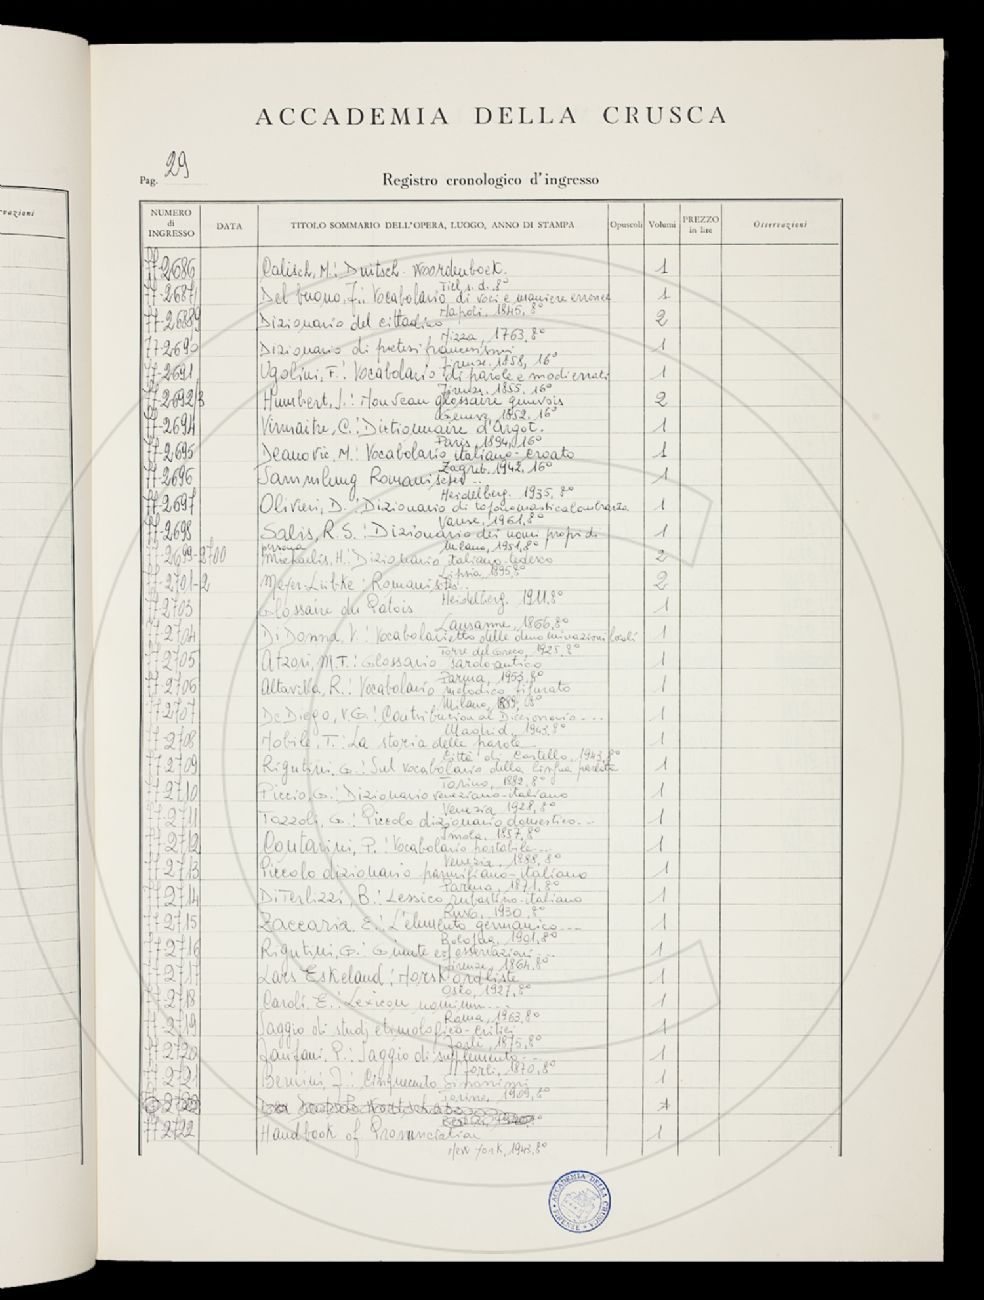 rvazioni
ACCADEMIA DELLA CRUSCA
Pag. 29
Registro cronologico d'ingresso
NUMERO di INGRESSO DATA TITOLO SOMMARIO DELL'OPERA, LUOGO, ANNO DI STAMPA Opuscoli Volumi PREZZO in lire Osservazioni
77-2686 Calisch, M.: Duitsch. Woordenboek. 1
Tiel s. d. 8°
77-2687 Del buono, F.: Vocabolario di voci e maniere erronee 1
Napoli, 1845, 8°
Dizionario del cittadino 2
Nizza, 1763, 8°
77-2690 Dizionario di pretesi francesismi 1
Firenze. 1858, 16°
77-2691 Ugolini, F.: Vocabolario di parole e modi errati 1
Firenze. 1855. 16°
77-2692/3 Humbert, J.: Nouveau glossaire genevois 2
Geneve, 1852. 16°
77-2694 Virmaitre, C.: Dictionnaire d'Argot. 1
Paris, 1894, 16°
77-2695 Deanovic, M.: Vocabolario italiano-croato 1
Zagreb. 1942. 16°
77-2696 Sammlung Romanischer .. 1
Heidelberg. 1935. 8°
77-2697 Olivieri, D.: Dizionario di toponomastica lombarda 1
Milano, 1961, 8°
77-2698 Salis, R.S.: Dizionario dei nomi propri di 1
persona Milano, 1951, 8°
77-2699-2700 Michaelis, H.: Dizionario italiano-tedesco 2
Lipsia, 1895, 8°
77-2701-2 Meyer-Lübke: Romanisches 2
Heidelberg. 1911. 8°
77-2703 Glossaire du Patois 1
Lausanne, 1866, 8°
77-2704 Di Donna, V.: Vocabolarietto delle denominazioni locali 1
Torre del Greco, 1925. 8°
77-2705 Atzori, M.T.: Glossario sardo antico 1
Parma, 1953, 8°
77-2706 Altavilla, R.: Vocabolario metodico figurato 1
Milano, 1889, 8°
77-2707 De Diego, V.G.: Contribucion al Diccionario ... 1
Madrid, 1943, 8°
77-2708 Nobile, T.: La storia delle parole 1
Città di Castello, 1943, 8°
77-2709 Rigutini, G.: Sul vocabolario della lingua parlata 1
Torino, 1882, 8°
77-2710 Piccio, G.: Dizionario veneziano-italiano 1
Venezia 1928, 8°
77-2711 Tozzoli, G.: Piccolo dizionario domestico... 1
Imola, 1857, 8°
77-2712 Contarini, P.: Vocabolario portabile... 1
Venezia, 1888, 8°
77-2713 Piccolo dizionario parmigiano-italiano 1
Parma, 1871, 8°
77-2714 Di Terlizzi, B.: Lessico rubastino-italiano 1
Ruvo, 1930, 8°
77-2715 Zaccaria, E.: L'elemento germanico ... 1
Bologna, 1901, 8°
77-2716 Rigutini, G.: Giunte ed osservazioni ... 1
Firenze, 1864, 8°
77-2717 Lars Eskeland: Norsk ordliste 1
Oslo, 1927, 8°
77-2718 Caroli, E.: Lexicon nominum... 1
Roma, 1963, 8°
77-2719 Saggio di studj etimologico-critici 1
Forlì, 1875, 8°
77-2720 Zanfani, P.: Saggio di supplemento ... 1
Forlì, 1870, 8°
77-2721 Bernini, F.: Cinquecento Sinonimi 1
Torino, 1909, 8°
77-2722 Handbook of Pronunciation 1
New York, 1943, 8°
ACCADEMIA DELLA CRUSCA FIRENZE